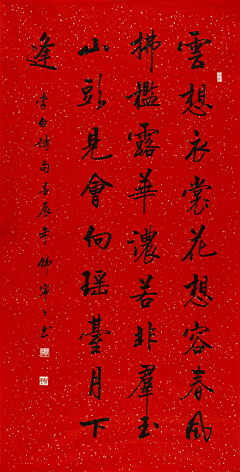 雲想衣裳花想容春風
拂檻露華濃若非羣玉
山頭見會向瑶臺月下
逢
李白詩句 辰年